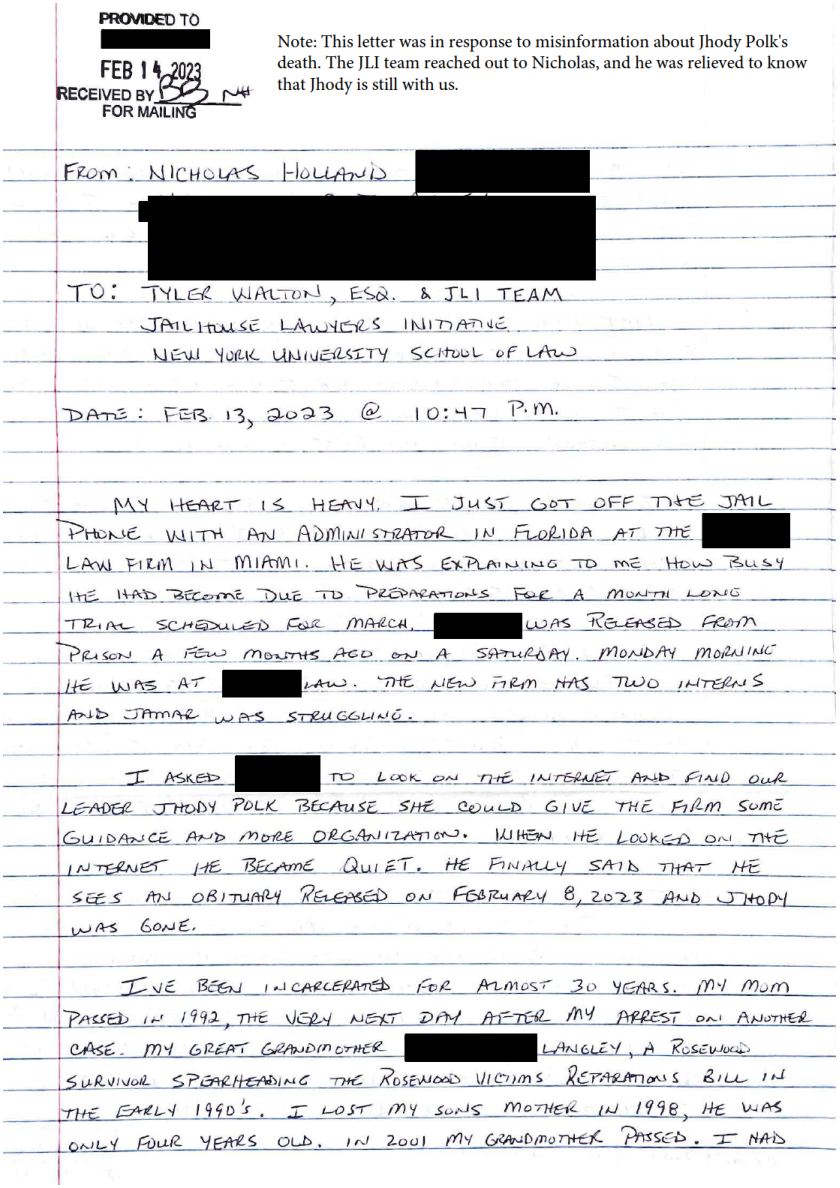 PROVIDED TO
FEB 14 2023
RECEIVED BY
FOR MAILING
Note: This letter was in response to misinformation about Jhody Polk's
death. The JLI team reached out to Nicholas, and he was relieved to know
that Jhody is still with us.
FROM: NICHOLAS HOLLAND
TO: TYLER WALTON, ESQ. & JLI TEAM
JAILHOUSE LAWYERS INITIATIVE
NEW YORK UNIVERSITY SCHOOL OF LAW
DATE: FEB. 13, 2023 @ 10:47 P.M.
MY HEART IS HEAVY. I JUST GOT OFF THE JAIL
PHONE WITH AN ADMINISTRATOR IN FLORIDA AT THE
LAW FIRM IN MIAMI. HE WAS EXPLAINING TO ME HOW BUSY
HE HAD BECOME DUE TO PREPARATIONS FOR A MONTH LONG
TRIAL SCHEDULED FOR MARCH. WAS RELEASED FROM
PRISON A FEW MONTHS AGO ON A SATURDAY. MONDAY MORNING
HE WAS AT LAW. THE NEW FIRM HAS TWO INTERNS
AND JAMAR WAS STRUGGLING.
I ASKED TO LOOK ON THE INTERNET AND FIND OUR
LEADER JHODY POLK BECAUSE SHE COULD GIVE THE FIRM SOME
GUIDANCE AND MORE ORGANIZATION. WHEN HE LOOKED ON THE
INTERNET HE BECAME QUIET. HE FINALLY SAID THAT HE
SEES AN OBITUARY RELEASED ON FEBRUARY 8, 2023 AND JHODY
WAS GONE.
I'VE BEEN INCARCERATED FOR ALMOST 30 YEARS. MY MOM
PASSED IN 1992, THE VERY NEXT DAY AFTER MY ARREST ON ANOTHER
CASE. MY GREAT GRANDMOTHER LANGLEY, A ROSEWOOD
SURVIVOR SPEARHEADING THE ROSEWOOD VICTIMS REPARATIONS BILL IN
THE EARLY 1990'S. I LOST MY SONS MOTHER IN 1998, HE WAS
ONLY FOUR YEARS OLD. IN 2001 MY GRANDMOTHER PASSED. I HAD